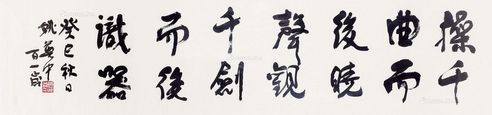 操千
曲而
後曉
聲觀
千劍
而後
識器
癸巳秋日
姚奠中
百一歲